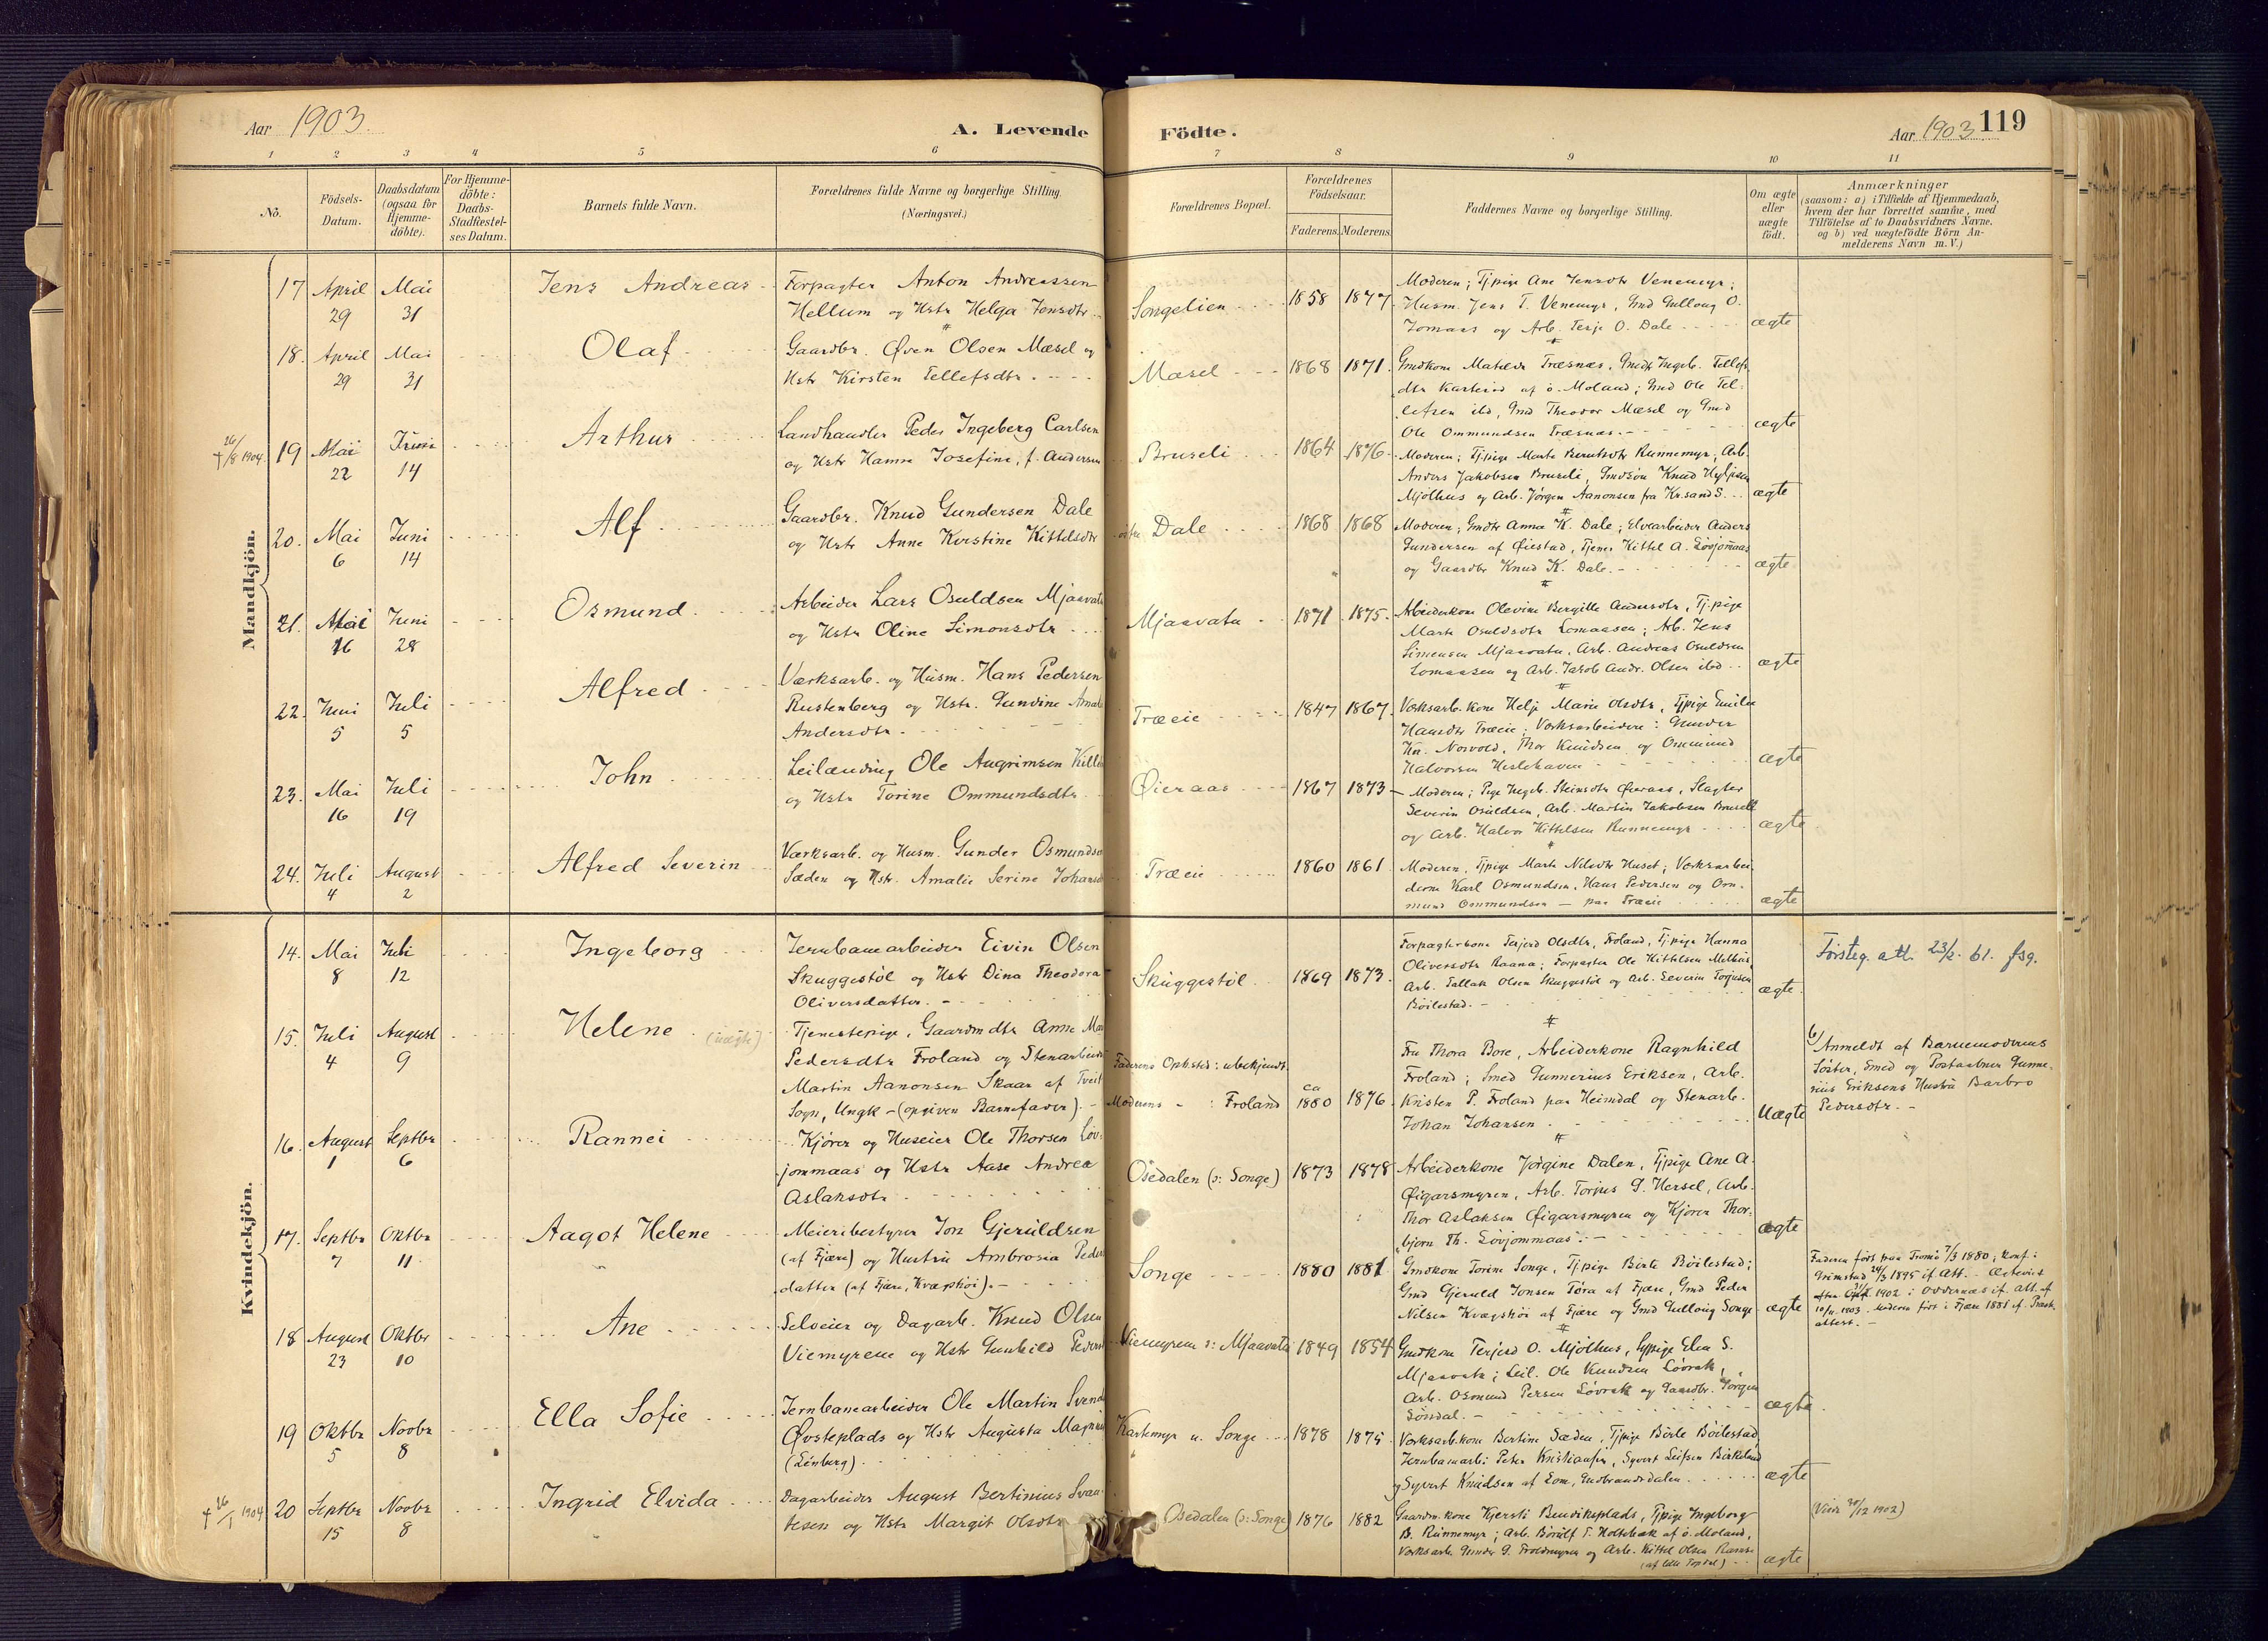 Aar 1903.
A. Levende
Födte.
Aar 1903
119
1 2 3 4 5 6 7 8 9 10 11
No.
Födsels-
Datum.
Daabsdatum
(ogsaa for
Hjemme-
döbte).
For Hjemme-
döbte:
Daabs-
Stadfæstel-
ses Datum.
Barnets fulde Navn.
Forældrenes fulde Navne og borgerlige Stilling.
(Næringsvei.)
Forældrenes Bopæl.
Forældrenes
Födselsaar.
Faderens. Moderens.
Faddernes Navne og borgerlige Stilling.
Om ægte
eller
uægte
födt.
Anmærkninger
(saasom: a) i Tilfælde af Hjemmedaab,
hvem der har forrettet samme, med
Tilföielse af to Daabsvidners Navne.
og b) ved uægtefödte Börn An-
melderens Navn m. V.)
Mandkjön.
17 April 29 Mai 31 Jens Andreas
Forpagter Anton Andreassen
Hellum og Hstr Helga Jensdtr
Songelien 1858 1877
Moderen; Tjpige Ane Jensdtr Venemyr;
Husm. Jens T. Venemyr, Gmd Gullong O.
Lomaas og Arb. Terje O. Dale
ægte
18. April 29 Mai 31 Olaf
Gaardbr. Øven Olsen Mæsel og
Hstr Kirsten Tellefsdtr.
Mæsel 1868 1871.
Gmdkone Matilda Træsnæs, Gmdtr Ingeb. Tellefs-
dtr af ö. Moland; Gmd Ole Tel-
lefsen ibd, Gmd Theodor Mæsel og Gmd
Ole Ommundsen Træsnæs.
ægte
† 26/8 1904.
19 Mai 22 Juni 14 Arthur
Landhandler Peder Ingeberg Carlsen
og Hstr Hanna Josefine, f. Andersen
Bruseli 1864 1876.
Moderen; Tjpige Marte Berntsdtr Runnemyr; Arb.
Anders Jakobsen Bruseli, Gmdsön Knud
Mjölhus og Arb. Jörgen Aanonsen fra Kr.sand S.
ægte
20. Mai 6 Juni 14 Alf
Gaardbr. Knud Gundersen Dale
og Hstr Anne Kirstine Kittelsdtr
östre Dale 1868 1868
Moderen; Gmdtr Anna K. Dale; Elvearbeider Anders
Gundersen af Öiestad, Tjener Kittel A. Lövjomaas
og Gaardbr Knud K. Dale.
ægte
21. Mai 16 Juni 28 Osmund
Arbeider Lars Osuldsen Mjaavatn
og Hstr Oline Simonsdtr
Mjaavatn 1871 1875.
Arbeiderkone Olevine Bergitte Andersdtr, Tj.pige
Marte Osuldsdtr Lomaasen; Arb. Jens
Simonsen Mjaavatn, Arb. Andreas Osuldsen
Lomaasen og Arb. Jakob Andr. Olsen ibd.
ægte
22. Juni 5 Juli 5 Alfred
Værksarb. og Husm. Hans Pedersen
Rustenberg og Hstr. Gundine Amalie
Andersdtr.
Træeie 1847 1867.
Værksarb. kone Helje Marie Olsdtr, Tjpige Emilie
Hansdtr Træeie; Værksarbeidere: Gunder
Kn. Norvold, Thor Knudsen og Ommund
Halvorsen Heslehaven
ægte
23. Mai 16 Juli 19 John
Leilænding Ole Augrimsen
og Hstr Torine Ommundsdtr
Øieraas 1867 1873
Moderen; Pige Ingeb. Steinsdtr Øieraas, Slagter
Severin Osuldsen, Arb. Martin Jakobsen Bruseli
og Arb. Halvor Kittelsen Runnemyr
ægte
24. Juli 4 August 2 Alfred Severin
Værksarb. og Husm. Gunder Osmundsen
Sæden og Hstr. Amalie Serine Johansdtr
Træeie 1860 1861.
Moderen, Tjpige Marte Nilsdtr Huset; Værksarbei-
derne Karl Osmundsen, Hans Pedersen og Om-
mund Ommundsen — paa Træeie
ægte
Kvindekjön.
14. Mai 8 Juli 12 Ingeborg
Jernbanearbeider Eivin Olsen
Skuggestöl og Hstr Dina Theodora
Oliversdatter.
Skuggestöl 1869 1873.
Forpagterkone Terjerd Olsdtr, Froland, Tj.pige Hanna
Oliversdtr Raana; Forpagter Ole Kittelsen Mölhus,
Arb. Tallak Olsen Skuggestöl og Arb. Severin Torjusen
Böilestad.
ægte
Försteg. att. 23/2. 61. fsg.
15. Juli 4 August 9 Helene (uægte)
Tjenestepige, Gaardmdtr Anne
Pedersdtr Froland og Stenarbeider
Martin Aanonsen Skaar af Tveit
Sogn, Ungk – (opgiven Barnefader).
Faderens Oph.sted: ubekjendt.
Moderens — : Froland
ca 1880 1876.
Fru Thora Bore, Arbeiderkone Ragnhild
Froland; Smed Gunnerius Eriksen, Arb.
Kristen P. Froland paa Heimdal og Stenarb.
Johan Johansen
Uægte
b) Anmeldt af Barnemoderens
Söster, Smed og Postaabner Gunne-
rius Eriksens Hustru Barbro
Pedersdtr.
16. August 1 Septbr 6 Rannei
Kjörer og Huseier Ole Thorsen Löv-
jommaas og Hstr Aase Andrea
Aslaksdtr
Osedalen (s: Songe) 1873 1878
Arbeiderkone Jörgine Dalen, Tjpige Ane A.
Øigarsmyren, Arb. Torjus G. Hersel, Arb.
Thor Aslaksen Øigarsmyren og Kjörer Thor-
bjørn Th. Lövjommaas.
ægte
17. Septbr 7 Oktbr 11 Aagot Helene
Meieribestyrer Jon Gjeruldsen
(af Fjære) og Hustru Ambrosia Peders
datter (af Fjære, Kvæphöi).
Songe 1880 1881
Gmdkone Torine Songe, Tj.pige Birte Böilestad;
Gmd Gjeruld Jonsen Töra af Fjære, Gmd Peder
Nilsen Kvægshöi af Fjære og Gmd Gullong Songe
ægte
Faderen födt paa Tromö 7/3 1880; konf:
Grimstad 24/3 1895 if. Att. – Ægteviet
1902 i Oddernæs if. att. af
10/11. 1903. Moderen föd i Fjære 1881 if. Præste-
attest.
18 August 23 Oktbr 10 Ane
Selveier og Dagarb. Knud Olsen
Viemyrene og Hstr Gunhild Pedersdtr
Viemyrene s: Mjaavatn 1849 1854
Gmdkone Terjerd O. Mjölhus, Tjpige Elen S.
Mjaavatn; Leil. Ole Knudsen Lövrak,
Arb. Osmund Persen Lövrak og Gaardbr. Jörgen
Söndal.
ægte
19 Oktbr 5 Novbr 8 Ella Sofie
Jernbanearbeider Ole Martin Svends
Øvsteplads og Hstr Augusta
(Lenberg).
Kartemyr u. Songe 1878 1875
Værksarb.kone Bertine Sæden, Tjpige Börle Böilestad,
Jernbanearb: Peter Kristiansen, Syvert Leifsen Birkeland
og Syvert Knudsen af Lom, Gudbrandsdalen
ægte
† 26/1 1904
20 Septbr 15 Novbr 8 Ingrid Elvida
Dagarbeider August Bertinius Svan-
tesen og Hstr Margit Olsdtr
Osedalen (s: Songe) 1876 1882
Gaardm.kone Kjersti Bendiksplads, Tjpige Ingeborg
B. Runnemyr; Arb. Börulf T. Holtebæk af ö. Moland,
Værksarb. Gunder G. Froldmyren og Arb. Kittel Olsen Ramse
(af lille Topdal)
ægte
(Viede 30/12 1902)